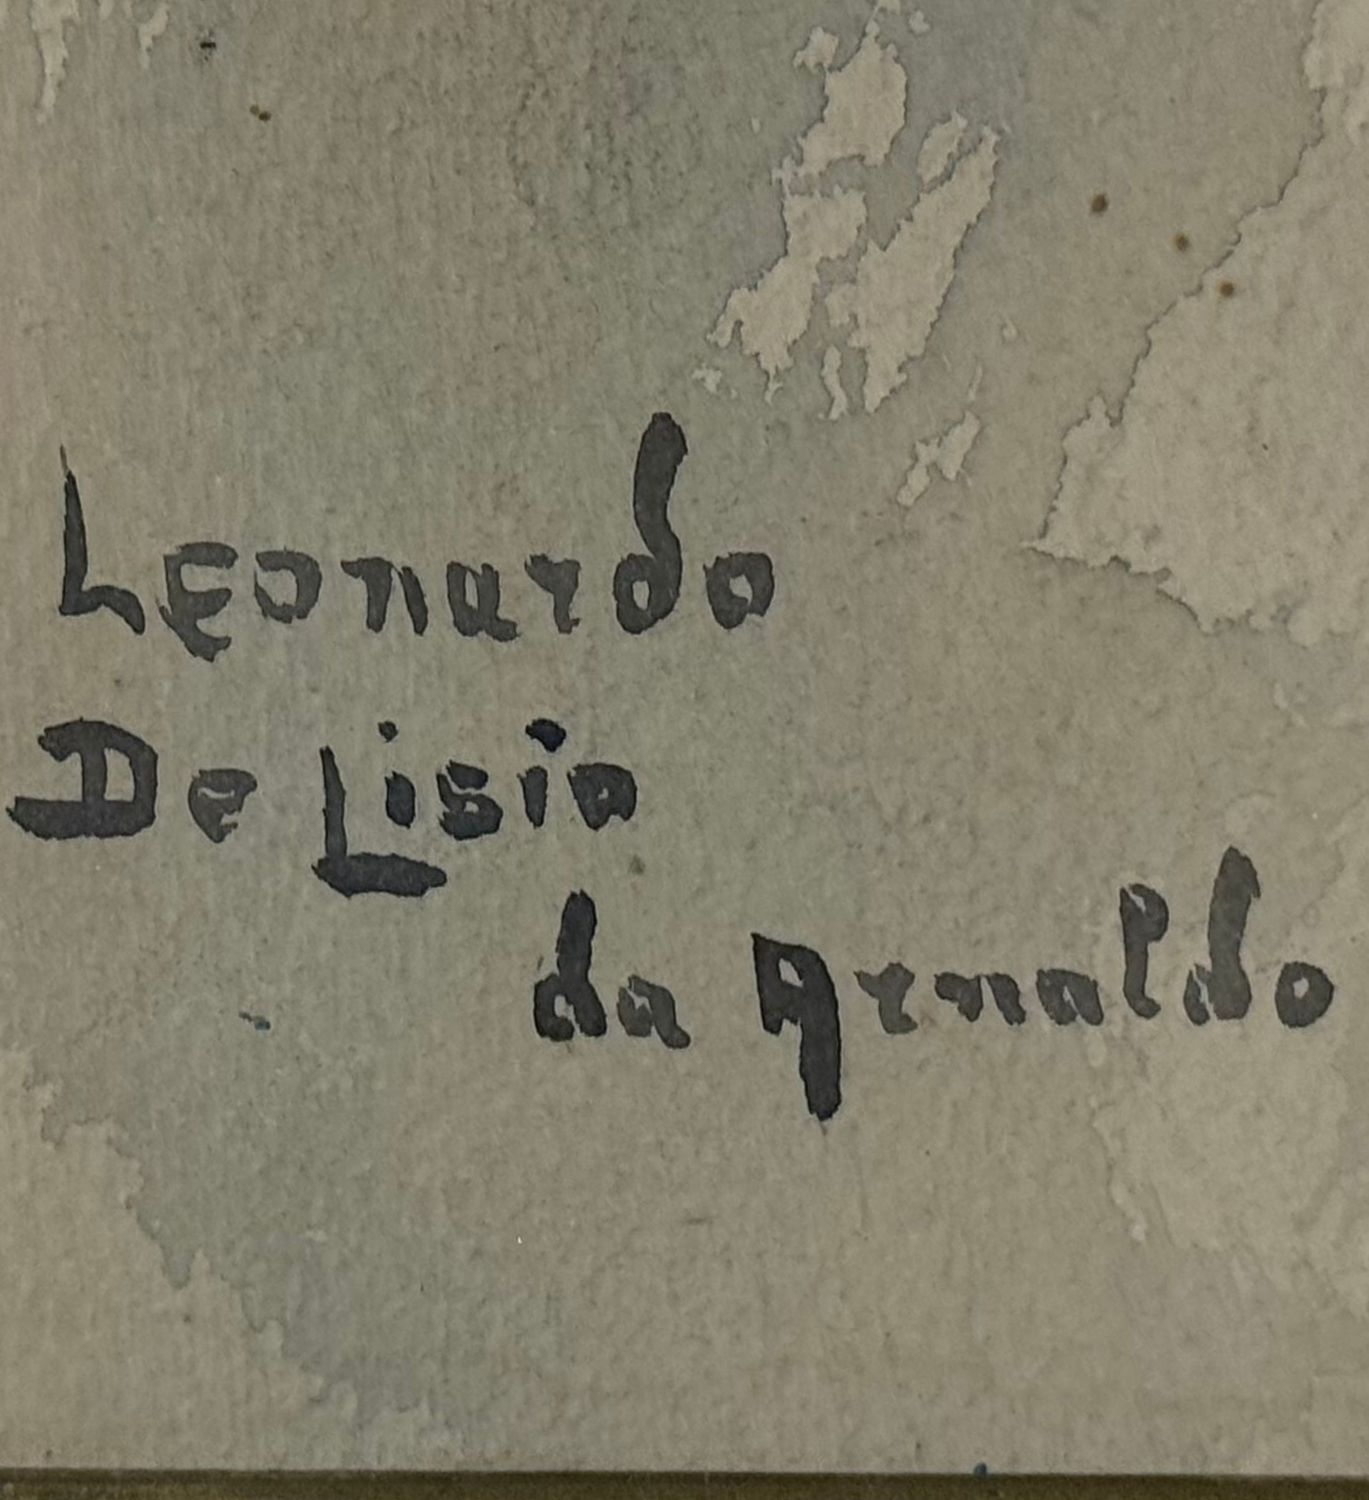 Leonardo
De Lisio
da Arnaldo